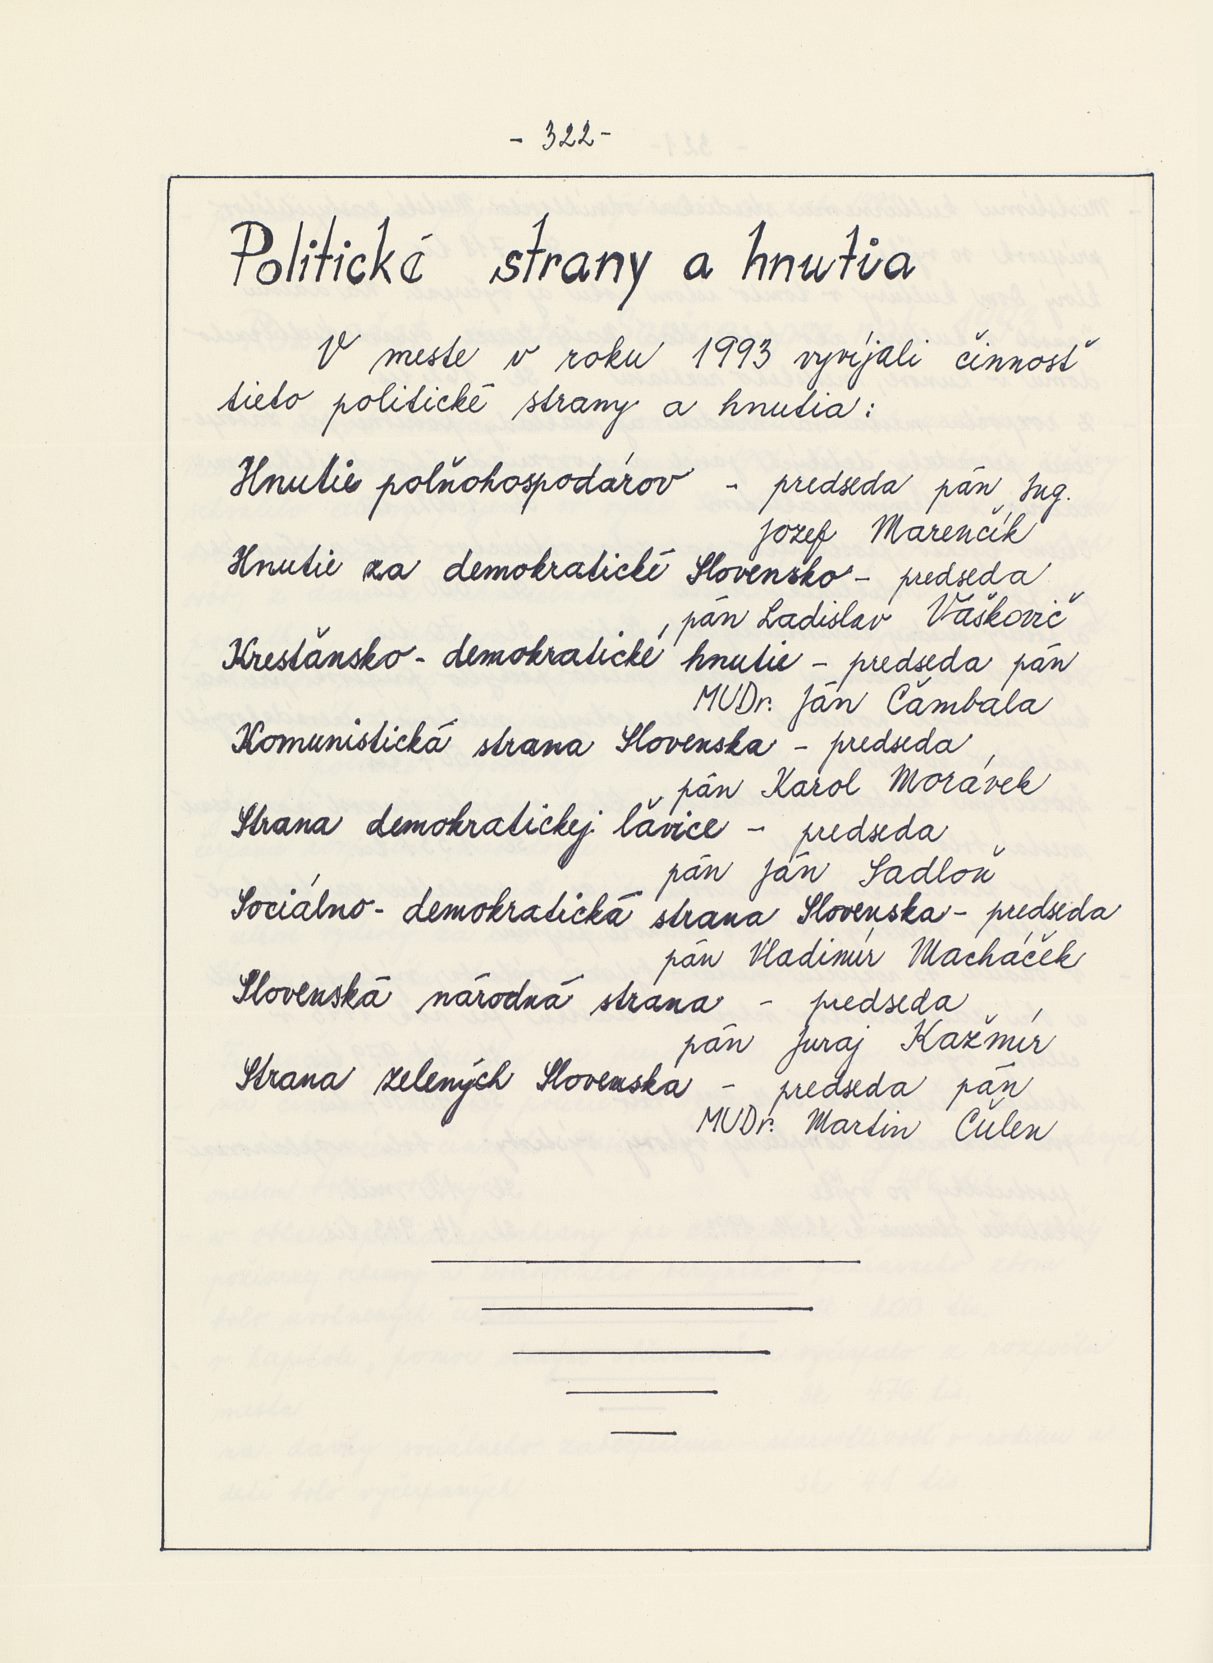 - 322 -
Politické strany a hnutia
V meste v roku 1993 vyvíjali činnosť
tieto politické strany a hnutia:
Hnutie poľnohospodárov - predseda pán Ing.
Jozef Marenčík
Hnutie za demokratické Slovensko - predseda
pán Ladislav Vaškovič
Kresťansko - demokratické hnutie - predseda pán
MUDr. Ján Čambala
Komunistická strana Slovenska - predseda
pán Karol Morávek
Strana demokratickej ľavice - predseda
pán Ján Sadloň
Sociálno - demokratická strana Slovenska - predseda
pán Vladimír Macháček
Slovenská národná strana - predseda
pán Juraj Kažmír
Strana zelených Slovenska - predseda pán
MUDr. Martin Čulen